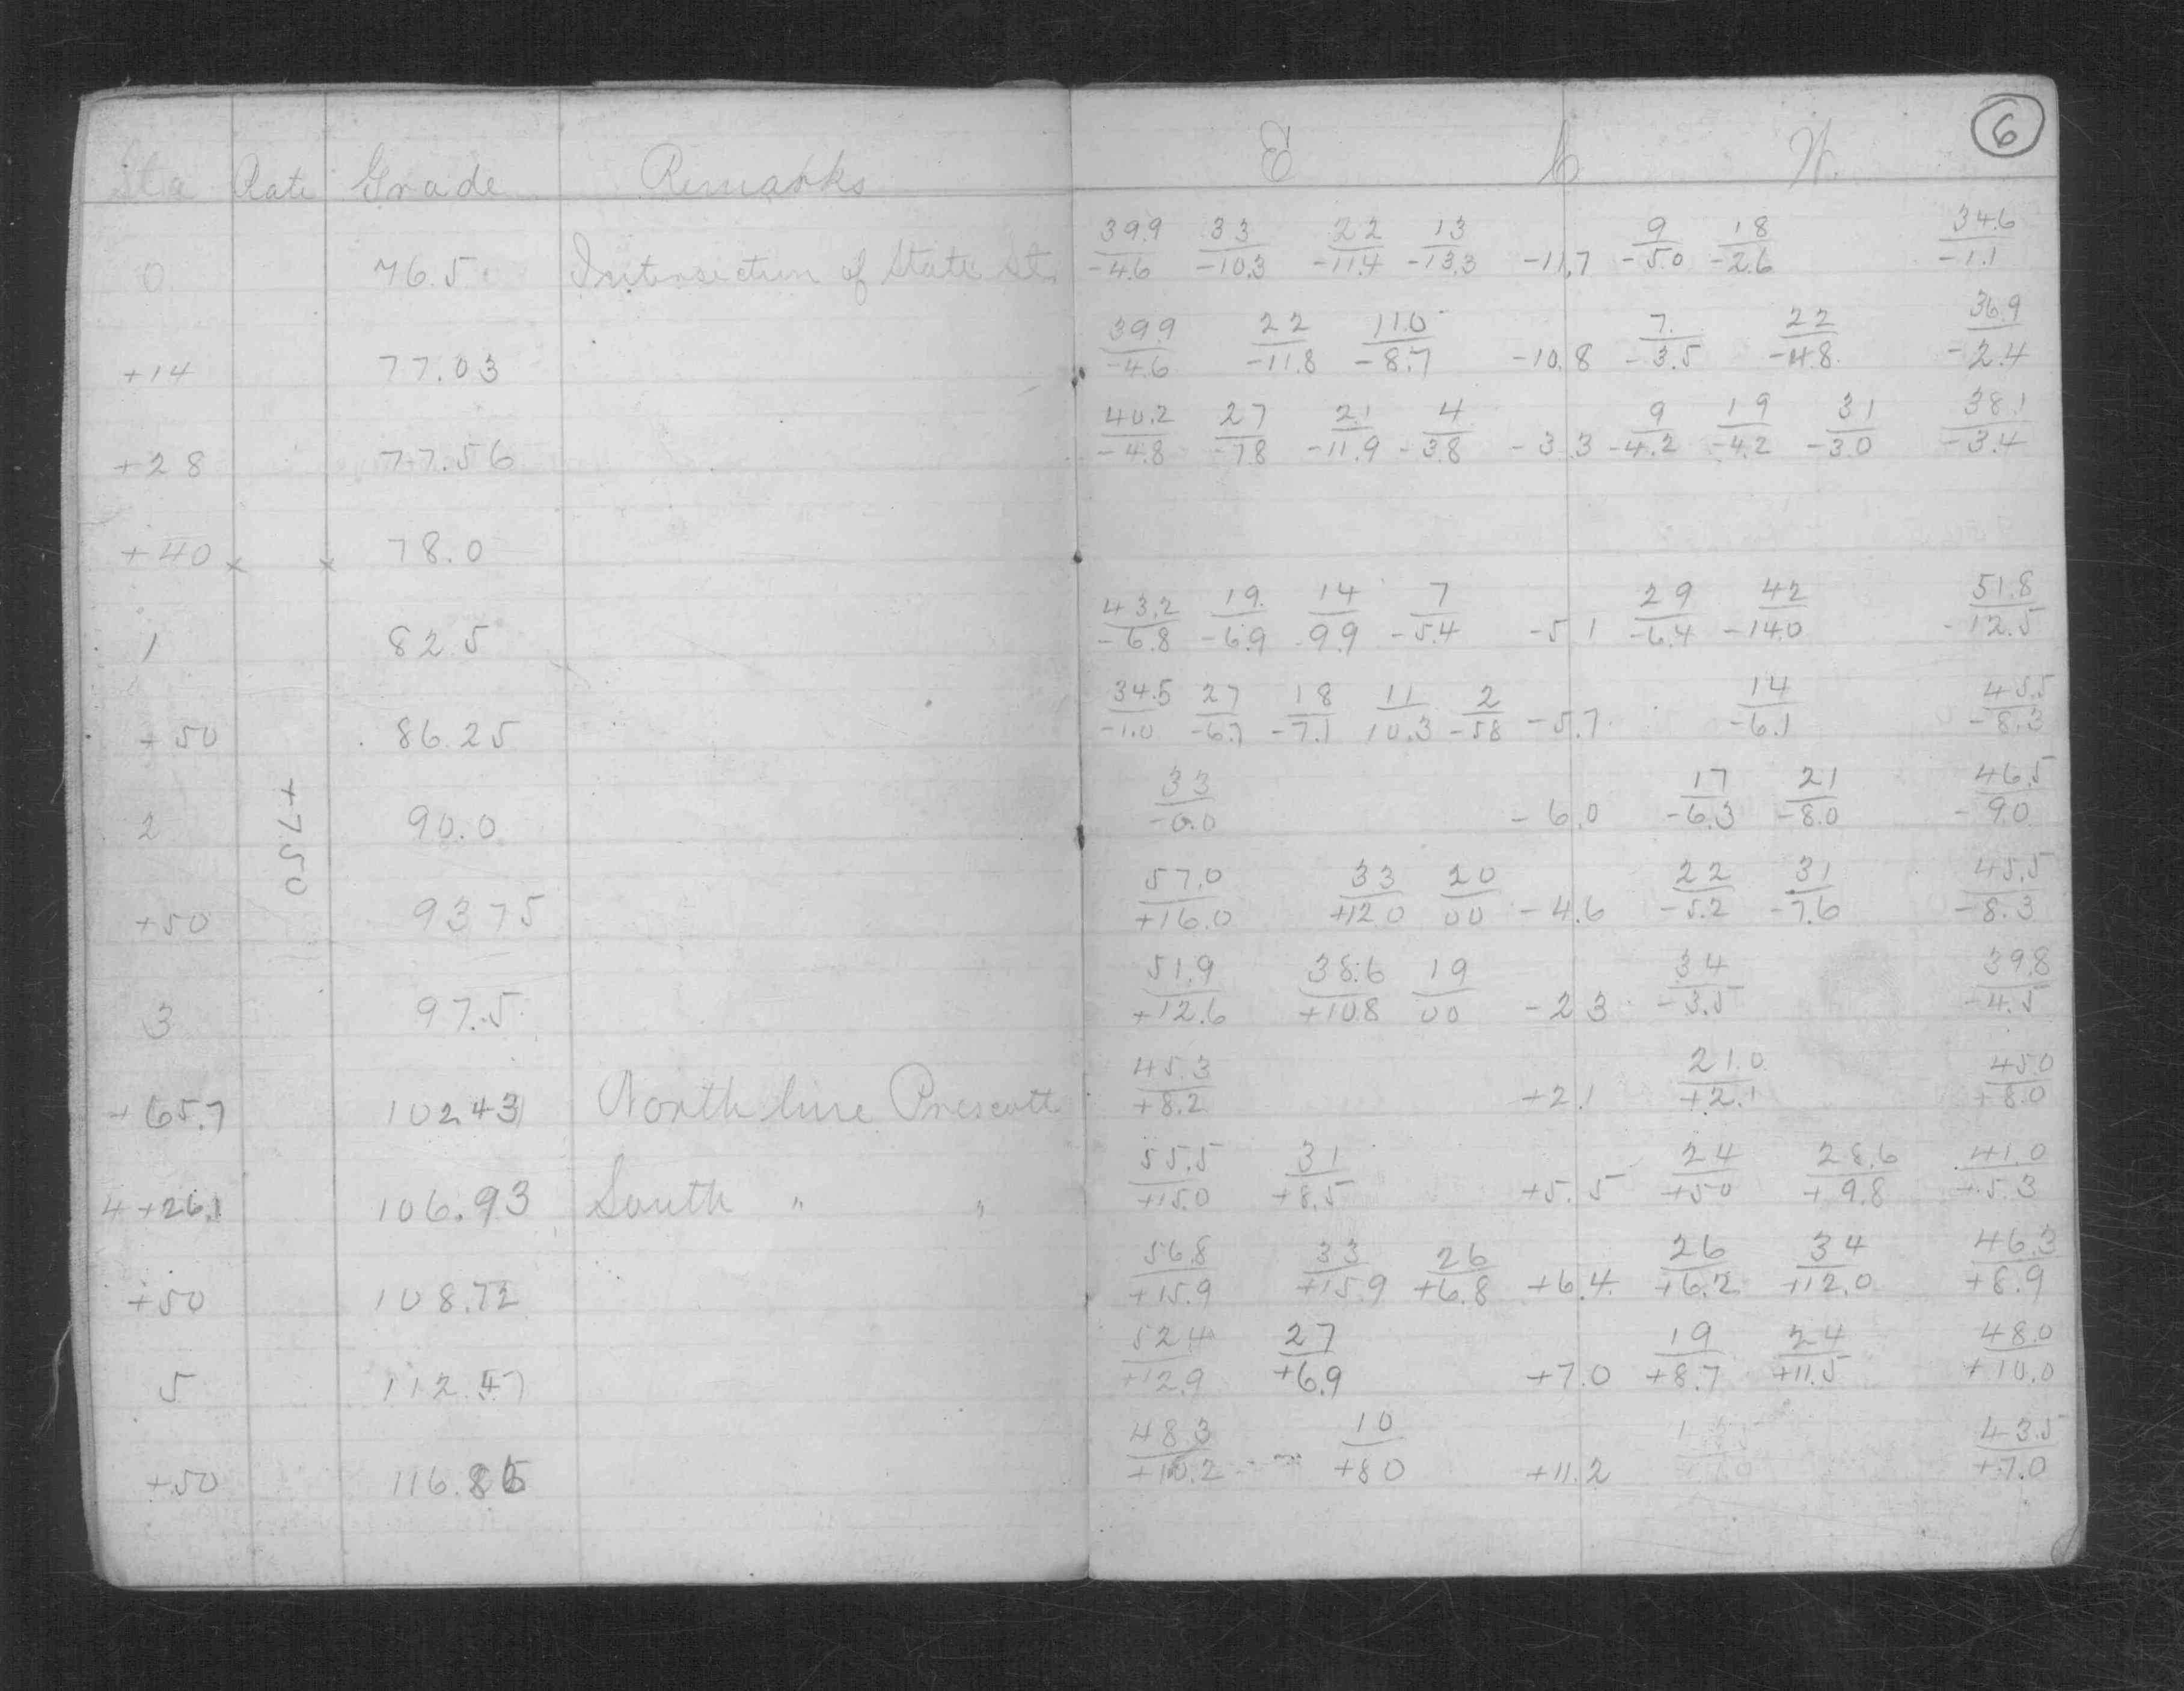 6
Sta Rate Grade Remarks E C W.
0 76.5 Intersection of State St. 39.9/-4.6 33/-10.3 22/-11.4 13/-13.3 -11.7 9/-5.0 18/-2.6 34.6/-1.1
+14 77.03 39.9/-4.6 22/-11.8 11.0/-8.7 -10.8 7./-3.5 22/-4.8 36.9/-2.4
+28 77.56 40.2/-4.8 27/-7.8 21/-11.9 4/-3.8 -3.3 9/-4.2 19/-4.2 31/-3.0 38.1/-3.4
+40 x x 78.0
1 82.5 43.2/-6.8 19/-6.9 14/-9.9 7/-5.4 -5.1 29/-6.4 42/-14.0 51.8/-12.5
+50 86.25 34.5/-1.0 27/-6.7 18/-7.1 11/10.3 2/-5.8 -5.7 14/-6.1 45.5/-8.3
+7.50
2 90.0 33/-0.0 -6.0 17/-6.3 21/-8.0 46.5/-9.0
+50 93.75 57.0/+16.0 33/+12.0 20/00 -4.6 22/-5.2 31/-7.6 45.5/-8.3
3 97.5 51.9/+12.6 38.6/+10.8 19/00 -2.3 34/-3.5 39.8/-4.5
+65.7 102.43 North line Prescott 45.3/+8.2 +2.1 21.0/+2.1 45.0/+8.0
4+26.1 106.93 South " " 55.5/+15.0 31/+8.5 +5.5 24/+5.0 28.6/+9.8 41.0/+5.3
+50 108.72 56.8/+15.9 33/+15.9 26/+6.8 +6.4 26/+6.2 34/+12.0 46.3/+8.9
5 112.47 52.4/+12.9 27/+6.9 +7.0 19/+8.7 24/+11.5 48.0/+10.0
+50 116.86 48.3/+10.2 10/+8.0 +11.2 43.5/+7.0